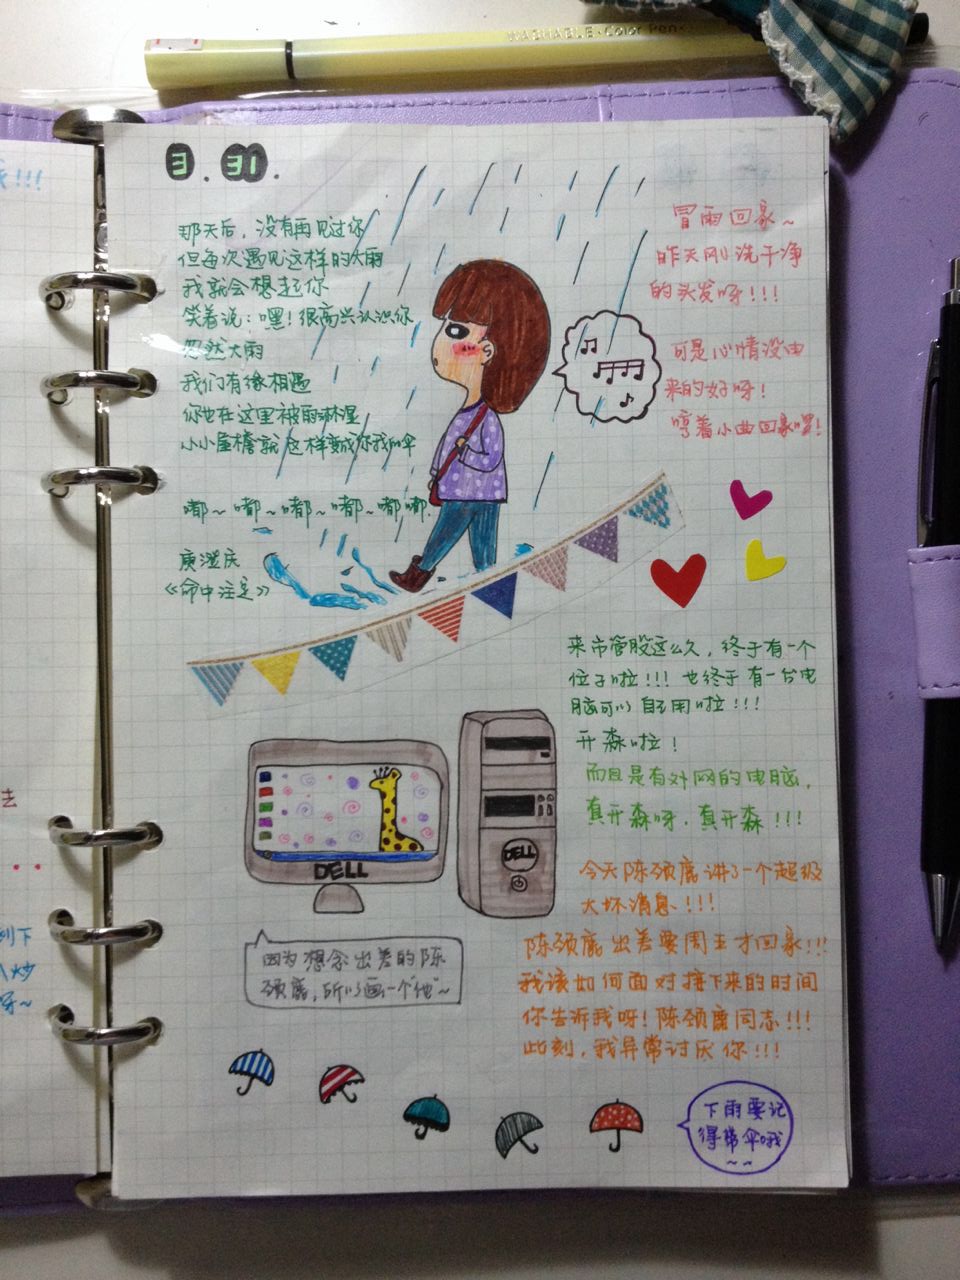 WASHABLE·Color Pen
!!!
3.31.
那天后，没有再见过你
但每次遇见这样的大雨
我就会想起你
笑着说：嘿！很高兴认识你
忽然大雨
我们有缘相遇
你也在这里被雨淋湿
小小屋檐就这样变成你我的伞
嘟～嘟～嘟～嘟～嘟嘟.
庾澄庆
《命中注定》
冒雨回家～
昨天刚洗干净
的头发呀！！！
可是心情没由
来的好呀！
哼着小曲回家喽！
来市管股这么久，终于有一个
位子啦！！！也终于有一台电
脑可以自己用啦！！！
开森啦！
而且是有外网的电脑，
真开森呀，真开森！！！
DELL
DELL
今天陈颈鹿讲了一个超级
大坏消息！！！
陈颈鹿出差要周五才回家！！！
我该如何面对接下来的时间
你告诉我呀！陈颈鹿同志！！！
此刻，我异常讨厌你！！！
因为想念出差的陈
颈鹿，所以画一个"他"～
下雨要记
得带伞哦
～～
去
到下
炒
呀～